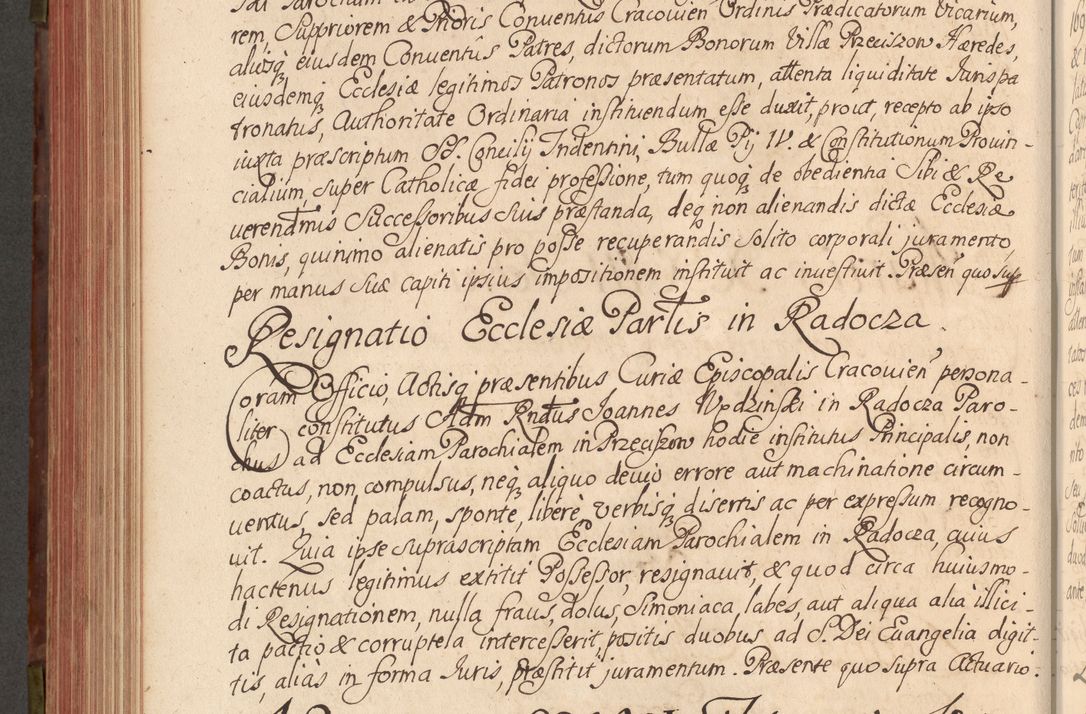 rem, Suppriorem & Prioris Conventus Cracovien̄ Ordinis Prædicatorum Vicarium,
aliosq̨ eiusdem Conventûs Patres, dictorum Bonorum Villæ Przeciszow Hæredes,
eiusdemq̨ Ecclesiæ legitimos Patronos præsentatum, attenta liquiditate Iurispa
tronatus, Authoritate Ordinaria instituendum esse duxit, prout, recepto ab ipso
iuxta præscriptum SS. Concilij Tridentini, Bullæ Pij IV. & Constitutionum Provin-
cialium, super Catholicæ fidei professione, tum quoq̨ de obedientia Sibi & Re
verendm̄is Successoribus Suis præstanda, deq̨ non alienandis dictæ Ecclesiæ
Bonis, quinimo alienatis pro posse recuperandis solito corporali juramento,
per manus suæ capiti ipsius impositionem instituit ac investivit. Præsen̄ quo sup̄
Resignatio Ecclesiæ Parlis in Radocza.
Coram Officio, Actisq̨ præsentibus Curiæ Episcopalis Cracovien̄ persona-
liter constitutus Adm Rndus Joannes Wodzinski in Radocza Paro-
chus ad Ecclesiam Parochialem in Przeciszow hodie institutus Principalis, non
coactus, non compulsus, neq̨ aliquo devio errore aut machinatione circum-
ventus, sed palam, sponte, liberè, verbisq̨ disertis ac per expressum recogno-
vit. Quia ipse suprascriptam Ecclesiam Parochialem in Radocza, cuius
hactenus legitimus extitit Possessor, resignavit, & quod circa huiusmo-
di Resignationem, nulla fraus, dolus, Simoniaca, labes, aut aliqua alia illici-
ta pactio & corruptela intercesserit, positis duobus ad S. Dei Evangelia digit-
tis, aliàs in forma Iuris, præstitit juramentum. Præsente quo supra Actuario.